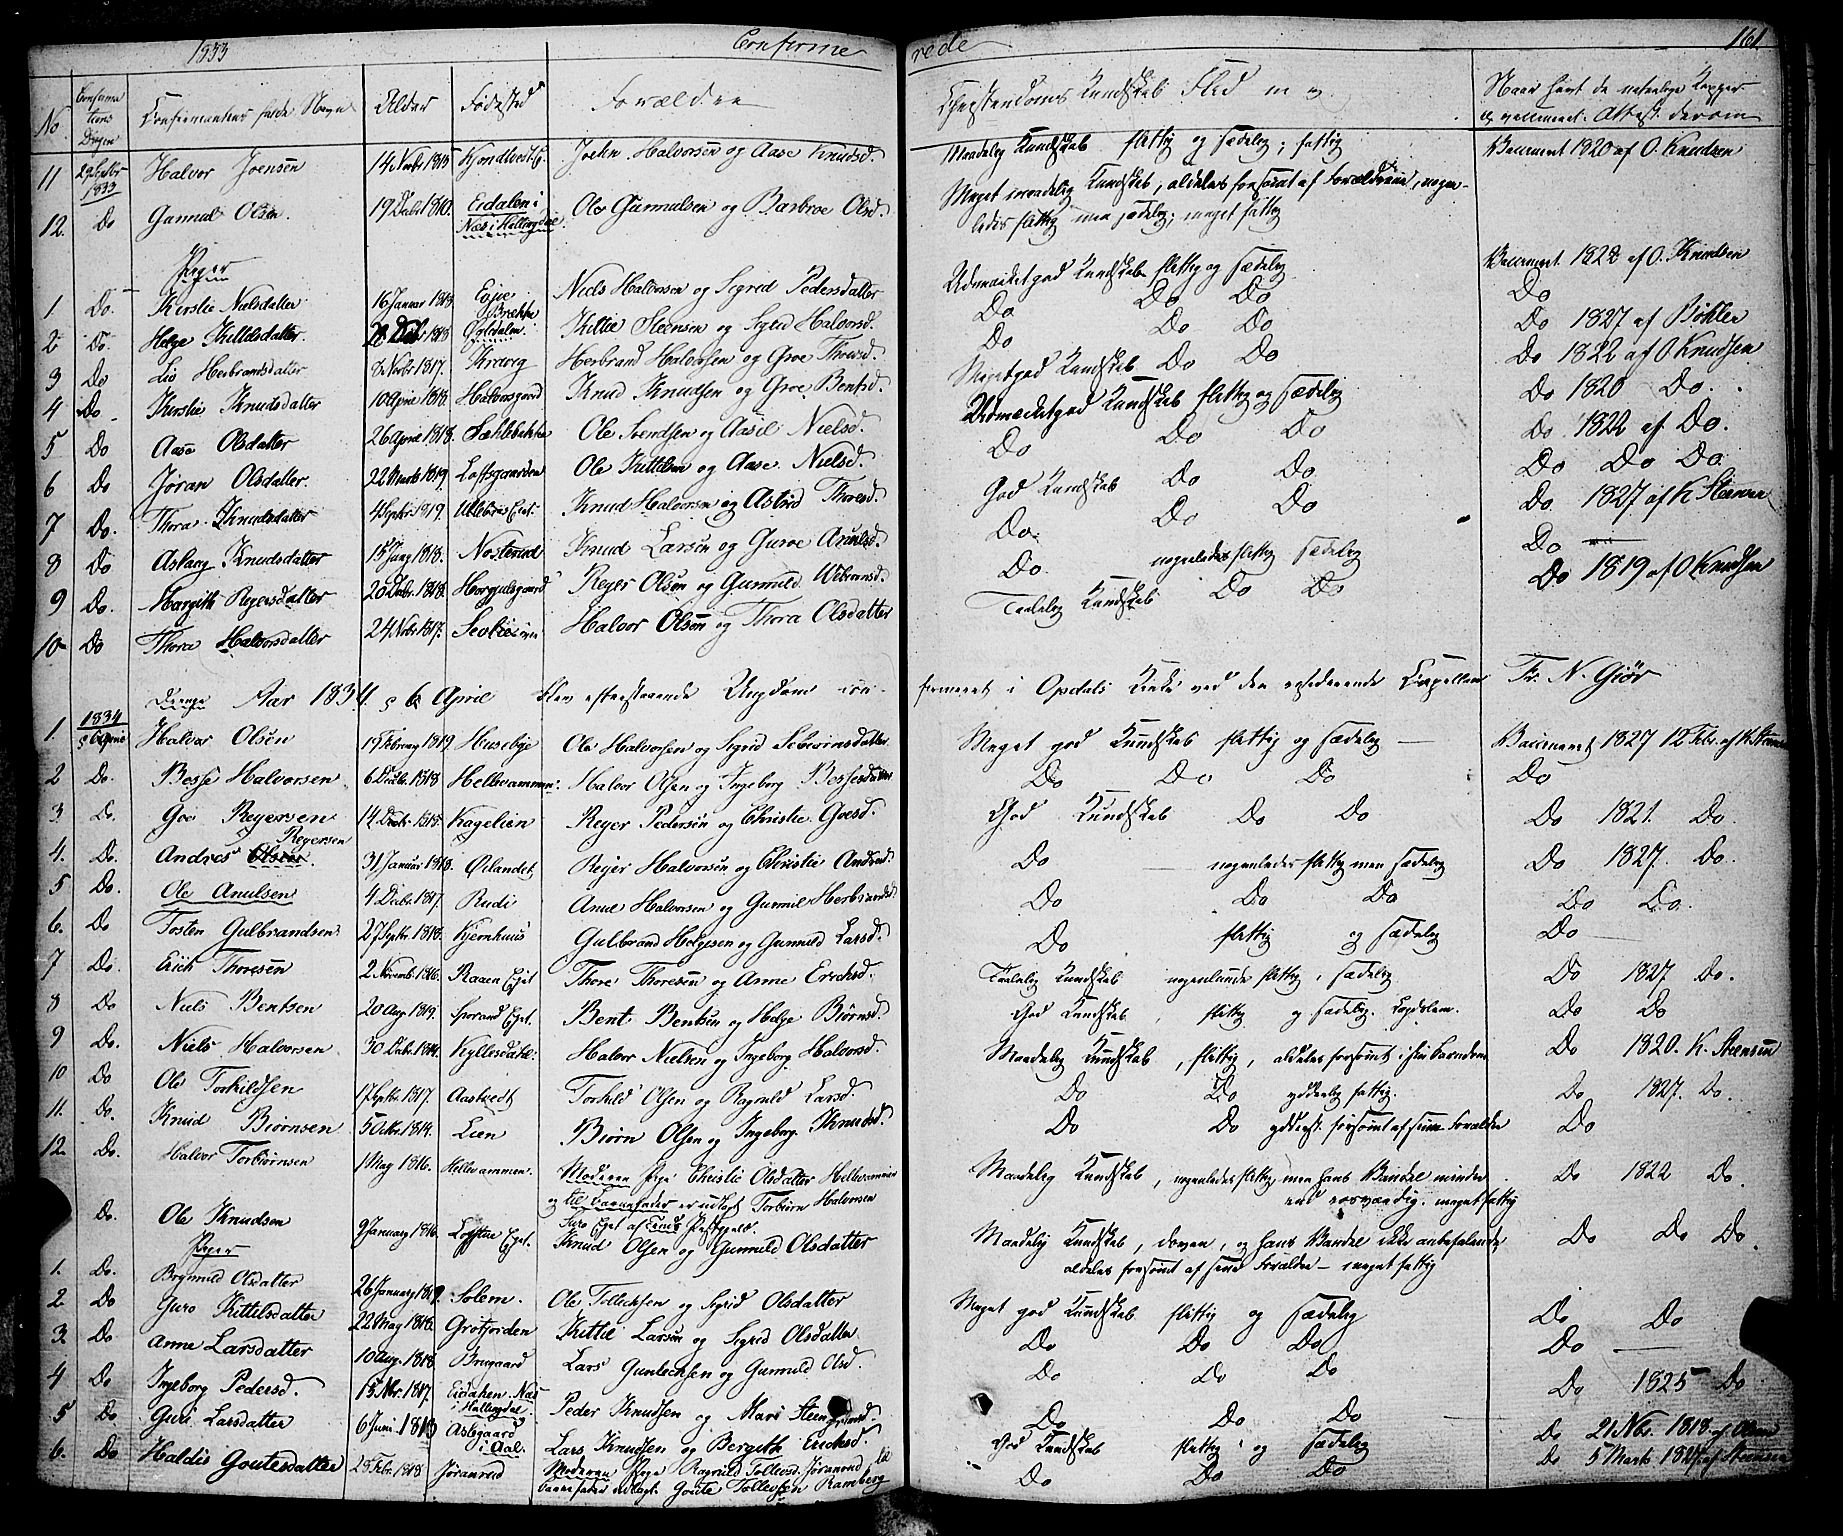 1833 Confirmerede 161
No Confirmations Dagen Confirmantens fulde Navn Alder Fødested Forældre Christendoms Kundskab Flid m. v. Naar havt de naturlige Kopper og vaccineret. Attest derom
11 29 Septbr 1833 Halvor Joensøn 14 Novbr 1815 Joen Halvorsøn og Aase Knudsd. Maadelig Kundskab flittig og sædelig; fattig Vaccineret 1820 af O. Knudsen
12. Do Gunnul Olsen 19 Decbr 1810. Eidalen i Næs i Hallingdal Ole Gunnulsen og Barbroe Olsd. Meget maadelig Kundskab, aldeles forsømt af Forældrene, nogenledes flittig men sædelig; meget fattig
Piger
1 Do. Kirstie Nielsdatter 16 Januar 1819 Niels Halvorsen og Sigrid Pedersdatter Udmærket god Kundskab flittig og sædelig Vaccineret 1822 af O. Knudsen
2 Do. Helge Kittilsdatter 1818 Kittil Steensen og Sigrid Halvorsd. Do Do Do Do 1827 af Bøhler
3 Do Liv Herbrandsdatter 8 Novbr 1817. Kravig Herbrand Halvorsen og Groe Thorsd. Do Do Do Do 1822 af O Knudsen
4 Do Kirstie Knudsdatter 10 April 1818. Halvorsgaard Knud Knudsen og Groe Bentsd. Meget god Kundskab Do Do Do 1820 Do.
5 Do Aase Olsdatter 26 April 1818. Ole Svendsen og Aasil Nielsd. Udmærket god Kundskab flittig og sædelig Do 1822 af Do.
6 Do Jøran Olsdatter. 22 Marts 1819. Loftsgaarden Ole Kittilsen og Aase Nielsd. Do Do Do Do Do Do
7 Do. Thora Knudsdatter 4 Septbr 1819. Ullebrin Eiet. Knud Halvorsen og Astrid Thoresd. God Kundskab Do Do Do 1827 af K Steensen
8 Do Aslaug Knudsdatter 15 Juny 1818. Nosterud Knud Larsøn og Guroe Arnulsd. Do. Do Do Do
9 Do. Margith Reyersdatter 20 Decbr 1818. Reyer Olsøn og Gunnuld Do. nogenledes flittig sædelig Do 1819 af O Knudsen
10 Do Thora Halvorsdatter 24 Novbr 1817. Halvor Olsøn og Thora Olsdatter Taalelig Kundskab Do Do
Drenge Aar 1834. § 6 April blev efterstaaende Ungdom confirmeret i Opdals Kirke ved den residerende Capellan Fr. N. Giør
1. 1834 § 6 April Halvor Olsøn 19 February 1819 Husebye Ole Halvorsen og Sigrid Meget god Kundskab flittig og sædelig Vaccineret 1827 12 Febr. af K Steensen
2 Do. Bosse Halvorsen 6 Decbr. 1818 Hellevammen: Halvor Olsen og Ingeborg Bossesdatter Do Do Do Do
3 Do. Goe Reyersen 14 1818 Kagelien Reyer Pedersøn og Christie Goesd. God Kundskab Do Do Do 1821. Do
4. Do. Andres Reyersen 31 Januar 1818. Ørlandet Reyer Halvorsøn og Christie Do nogenledes flittig men sædelig Do 1827. Do.
5 Do. Ole Anulsen 4 Decbr. 1817. Rudi Anul Halvorsen og Gunnil Herbrandsd. Do Do Do Do Do.
6. Do Tosten Gulbrandsen 27 Septbr. 1818. Kjernhuus Gulbrand Helgesen og Gunnuld Larsd. Do flittig og sædelig Do
7 Do. Erich Thoresøn 2 Novemb. 1816. Raaen Eget Thore Thoresøn og Anne Erichsd. Taalelig Kundskab nogenlunde flittig, sædelig Do 1827. Do.
8 Do Niels Bentsen 20 Aug 1819. Eget. Bent Bentsøn og Helge Biørnsd. God Kundskab, flittig og sædelig. Do Do
9 Do. Niels Halvorsen 30 Decbr. Halvor Nielsen og Ingeborg Halvorsd. Maadelig Kundskab, flittig, aldeles forsømt i sin Barndom Do 1820. K. Steensøn
10 Do Ole Torkildsen 17 Septbr. 1817. Aasteedt Torkild Olsen og Ragnild Larsd. Do Do yderlig fattig. Do 1827. Do.
11. Do. Knud Biørnsen 5 Octbr. 1819. Lien Biørn Olsen og Ingeborg Knudsd. Do Do yderst forsømt af sine Forældre Do
12. Do. Halvor Torbiørnsen 1 May 1816. Hellevammen. Moderen Pige Christie Olsdatter Hellevammen og til Barnefader er udlagt Torbiørn Halvorsen Eget af Præstegield. Maadelig Kundskab, nogenledes flittig men hans Vandel mindre end rosværdig. meget fattig Do 1822 Do.
Do. Ole Knudsen 9 January 1816. Eget. Knud Olsen og Gunnuld Olsdatter Maadelig Kundskab, doven, og hans Vandel ikke anbefalende aldeles forsømt af sine Forældre – meget fattig Do Do Do.
Piger
1. Do. Brynnild Olsdatter 26 January 1819. Solem. Ole Tollechsen og Sigrid Olsdatter Meget god Kundskab flittig og sædelig Do Do
2. Do Guro Kittelsdatter 22 May 1818. Grøtjorden Kittil Larsøn og Sigrid Olsdatter Do Do Do Do
3. Do Anne Larsdatter 10 Aug. 1818. Brugaard Lars Gunlechsen og Gunnuld Olsd. Do Do Do Do 1825 Do
4 Do Ingeborg Pedersd. 15 Nbr. 1817. Eidahen Næs i Hallingdal. Peder Knudsen og Mari Do Do Do Do 21 Nbr. 1818 af
5 Do. Guri Larsdatter 6 Juni 1819 Aslegaard i Aal. Lars Knudsen og Bergith Erichsd. God Kundskab flittig og sædelig Do 5 Marts 1827 af Steensen
6. Do Haldis Goutesdatter 28 Febr. 1818 Jøranrud Moderen Pige Ragnild Tollevsd. Jøranrud Barnefader udlagt Goute Tollevsen Ramberg Do Do Do